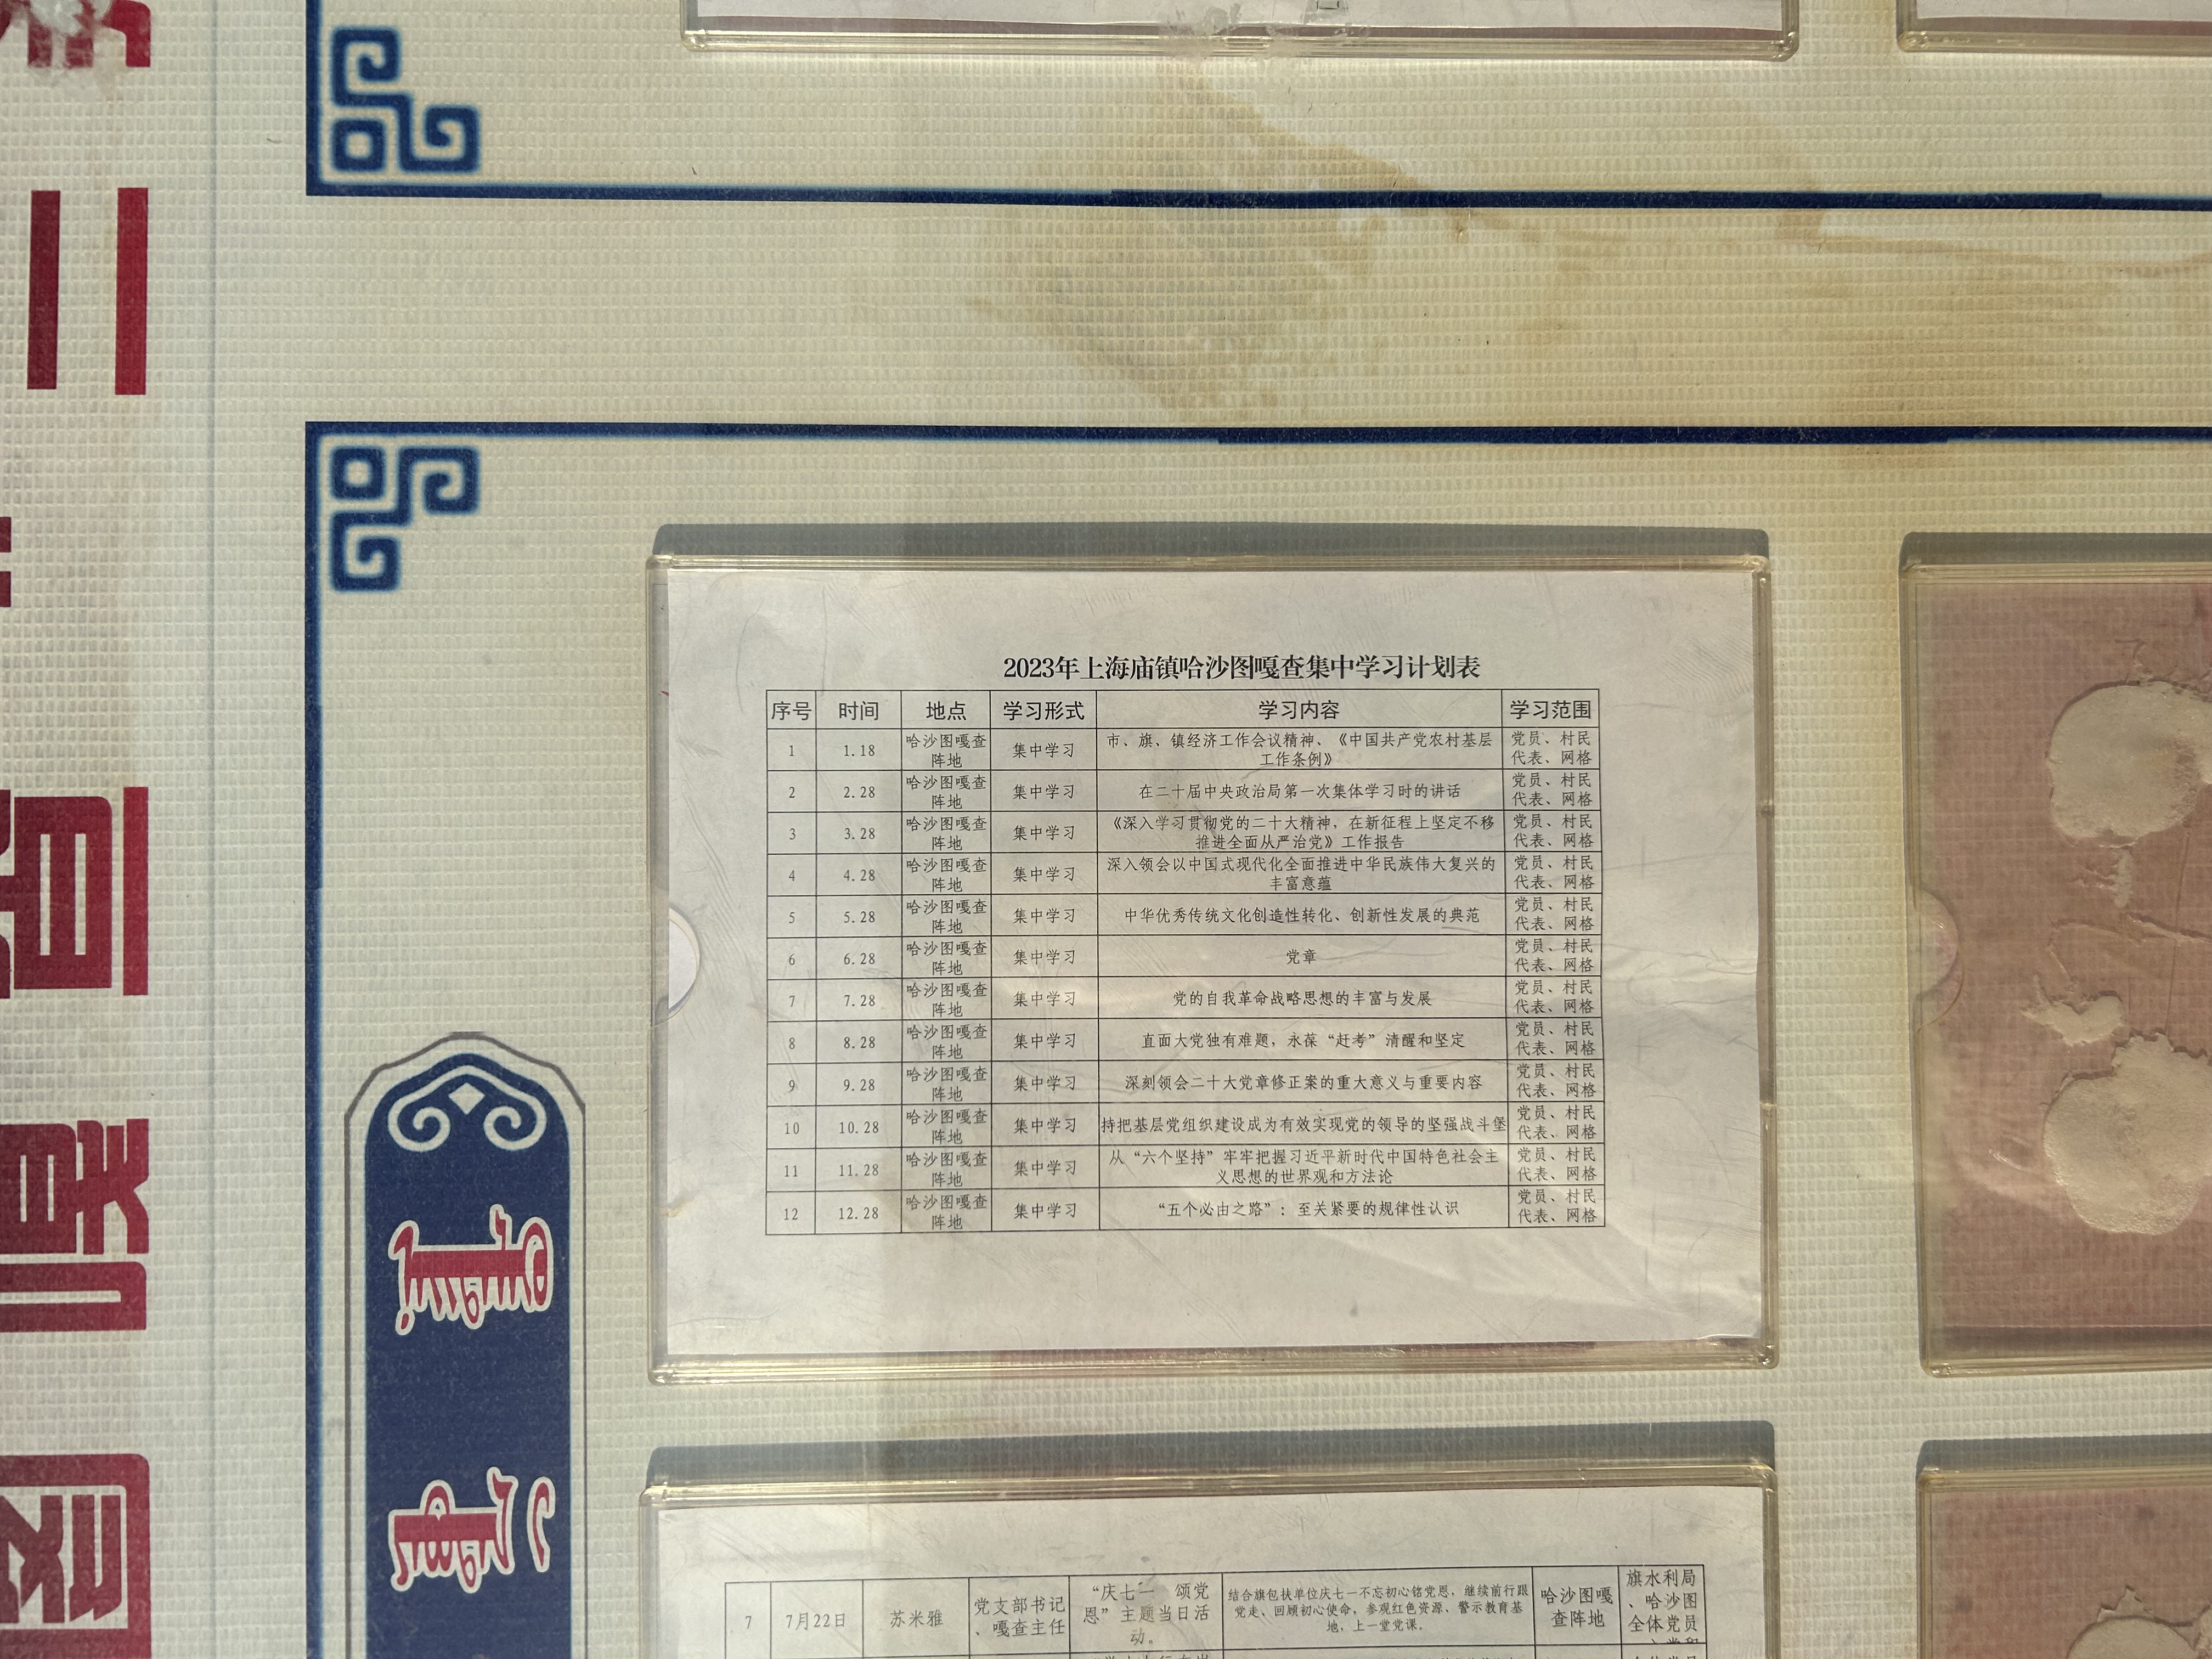 2023年上海庙镇哈沙图嘎查集中学习计划表
序号 时间 地点 学习形式 学习内容 学习范围
1 1.18 哈沙图嘎查阵地 集中学习 市、旗、镇经济工作会议精神、《中国共产党农村基层工作条例》 党员、村民代表、网格
2 2.28 哈沙图嘎查阵地 集中学习 在二十届中央政治局第一次集体学习时的讲话 党员、村民代表、网格
3 3.28 哈沙图嘎查阵地 集中学习 《深入学习贯彻党的二十大精神，在新征程上坚定不移推进全面从严治党》工作报告 党员、村民代表、网格
4 4.28 哈沙图嘎查阵地 集中学习 深入领会以中国式现代化全面推进中华民族伟大复兴的丰富意蕴 党员、村民代表、网格
5 5.28 哈沙图嘎查阵地 集中学习 中华优秀传统文化创造性转化、创新性发展的典范 党员、村民代表、网格
6 6.28 哈沙图嘎查阵地 集中学习 党章 党员、村民代表、网格
7 7.28 哈沙图嘎查阵地 集中学习 党的自我革命战略思想的丰富与发展 党员、村民代表、网格
8 8.28 哈沙图嘎查阵地 集中学习 直面大党独有难题，永葆“赶考”清醒和坚定 党员、村民代表、网格
9 9.28 哈沙图嘎查阵地 集中学习 深刻领会二十大党章修正案的重大意义与重要内容 党员、村民代表、网格
10 10.28 哈沙图嘎查阵地 集中学习 持把基层党组织建设成为有效实现党的领导的坚强战斗堡 党员、村民代表、网格
11 11.28 哈沙图嘎查阵地 集中学习 从“六个坚持”牢牢把握习近平新时代中国特色社会主义思想的世界观和方法论 党员、村民代表、网格
12 12.28 哈沙图嘎查阵地 集中学习 “五个必由之路”：至关紧要的规律性认识 党员、村民代表、网格
7 7月22日 苏米雅 党支部书记、嘎查主任 “庆七一 颂党恩”主题当日活动。 结合旗包扶单位庆七一不忘初心铭党恩，继续前行跟党走、回顾初心使命，参观红色资源、警示教育基地，上一堂党课。 哈沙图嘎查阵地 旗水利局、哈沙图全体党员